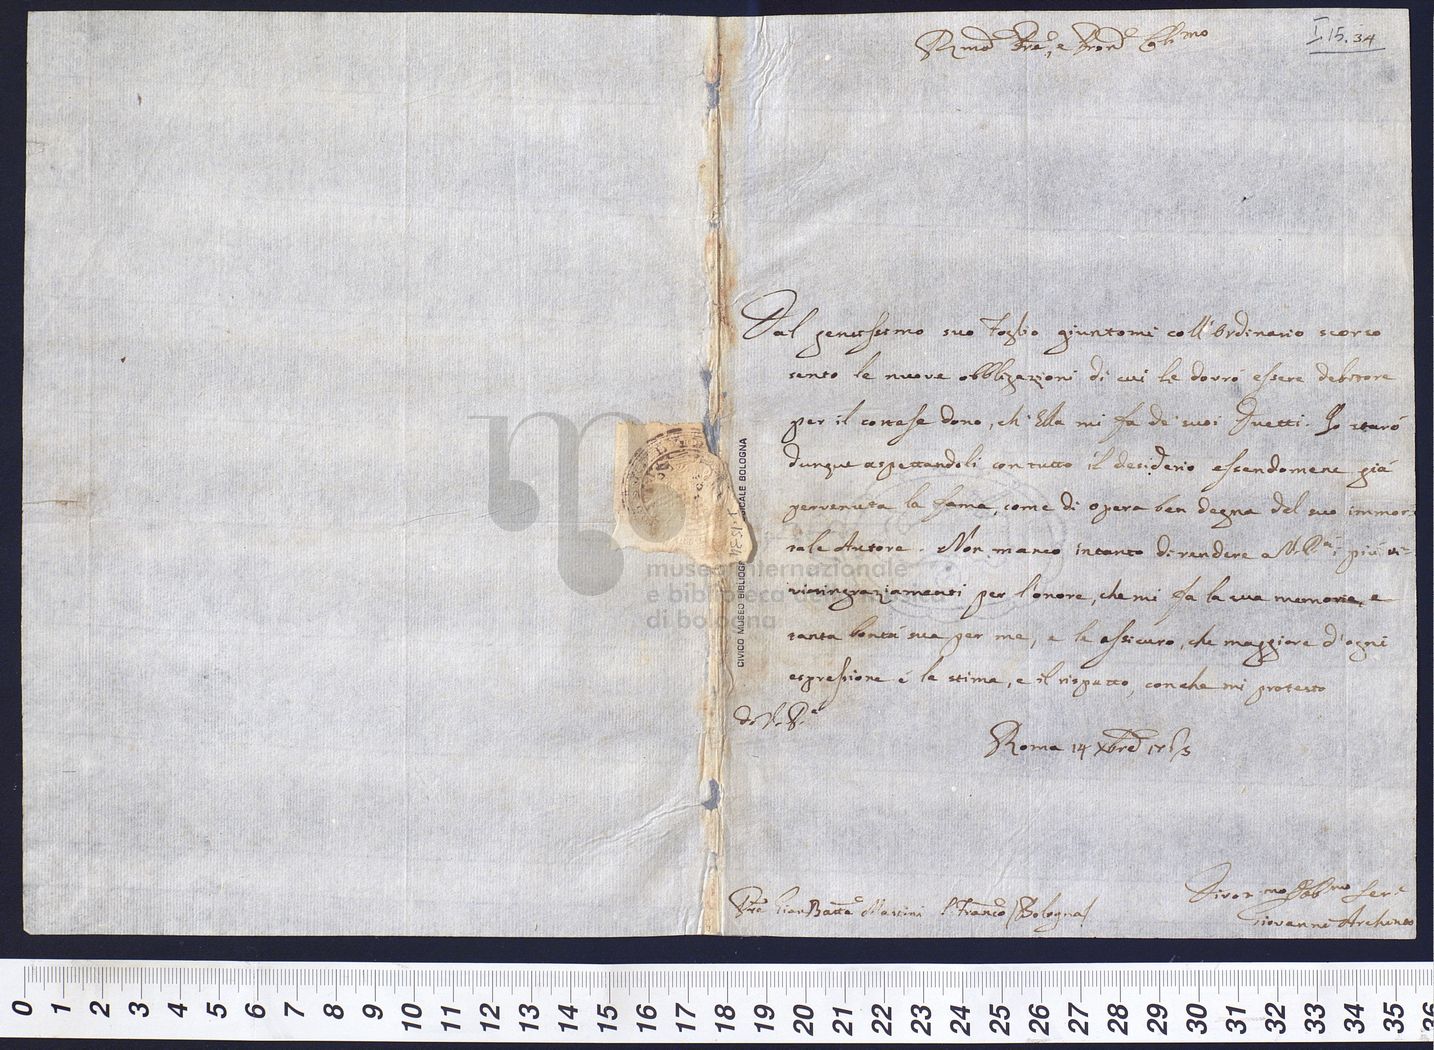 I.15.34
R.mo Pre, e Pron Col.mo
Dal gentilissimo suo foglio giuntomi coll'Ordinario scorso
sento le nuove obbligazioni di cui le dovrò essere debitore
per il cortese dono, ch'Ella mi fa de' suoi Duetti. Io starò
dunque aspettandoli con tutto il desiderio essendomene già
pervenuta la fama, come di opera ben degna del suo immor-
tale Autore. Non manco intanto di rendere a V. P.tà i più vi-
vi ringraziamenti per l'onore, che mi fa la sua memoria, e
tanta bontà sua per me, e le assicuro, che maggiore d'ogni
espressione è la stima, e il rispetto, con che mi protesto
di V. P.tà
Roma 14 Xbre 1763
Giovanni Archinto
Pre Gian Batta Martini S. Franco (Bologna)
CIVICO MUSEO BIBLIOGR ICALE BOLOGNA
I.15.34
museo internazionale
e biblioteca della musica
di bologna
0 1 2 3 4 5 6 7 8 9 10 11 12 13 14 15 16 17 18 19 20 21 22 23 24 25 26 27 28 29 30 31 32 33 34 35 36